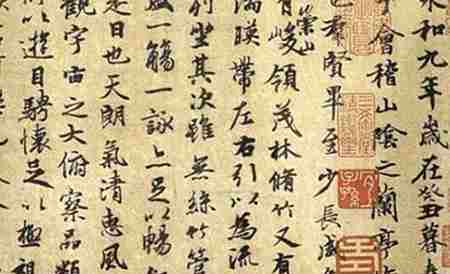 永和九年歲在癸丑暮
會稽山陰之蘭亭
也群賢畢至少長咸
有崇山峻領茂林脩竹又有
湍暎帶左右引以為流
列坐其次雖無絲竹管
盛一觴一詠亦足以暢
是日也天朗氣清惠風
觀宇宙之大俯察品類
所以遊目騁懷足以極視